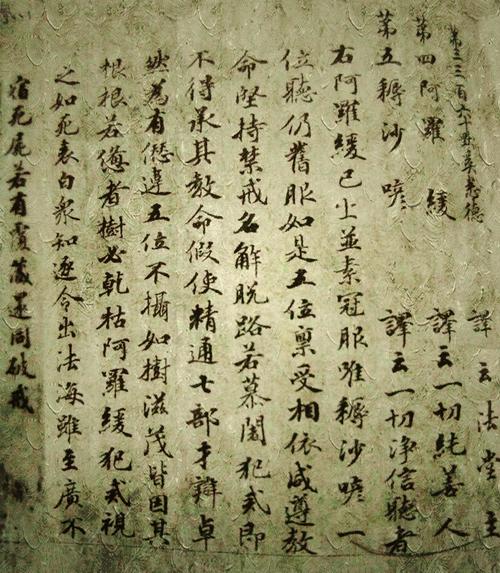 第三三百六十默奚悉德 譯云法堂主
第四阿羅緩 譯云一切純善人
第五耨沙喭 譯云一切净信聽者
右阿羅緩已上並素冠服唯耨沙喭一
位聽仍舊服如是五位稟受相依咸遵教
命堅持禁戒名解脫路若慕闍犯戒即
不得承其教命假使精通七部才辯卓
然為有僁違五位不攝如樹滋茂皆因其
根根若憊者樹必乾枯阿羅緩犯戒視
之如死表白衆知逐令出法海雖至廣不
宿死屍若有覆藏還同破戒